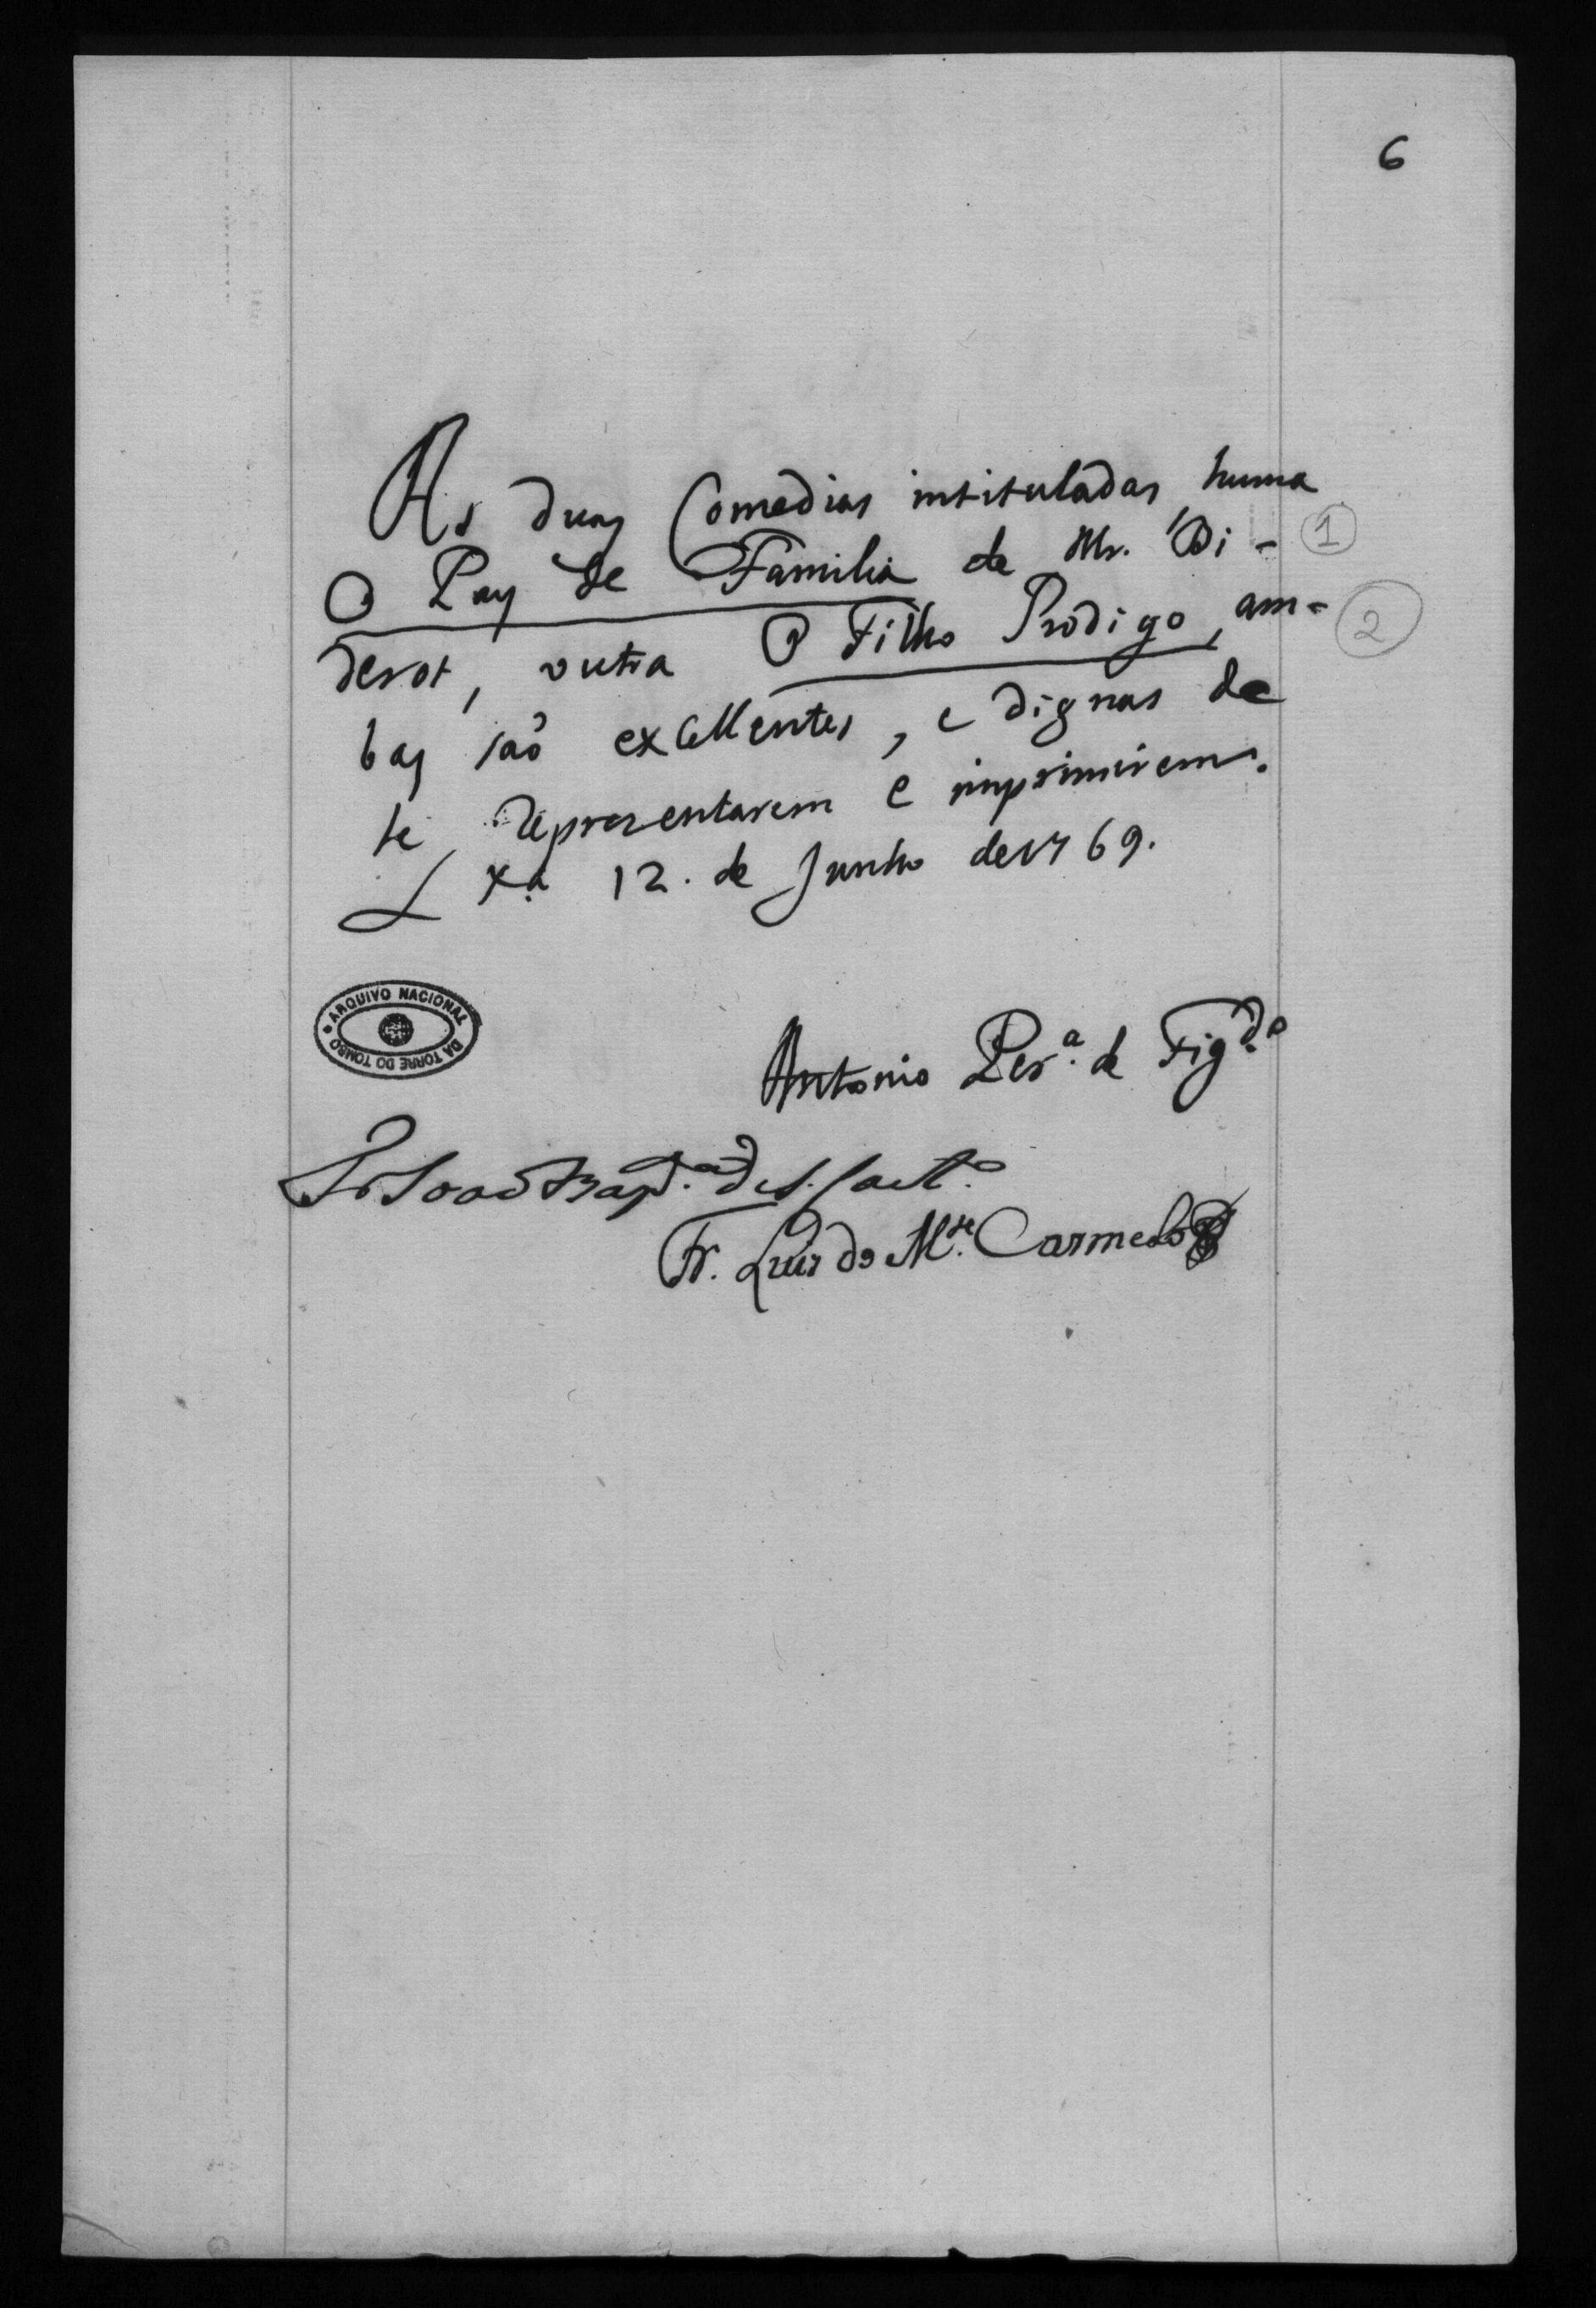 6
As duas Comedias intituladas huma
O Pay de Familia de Mr. Di-
1
derot, outra O Filho Prodigo, am-
2
bas saõ excellentes, e dignas de
se representarem e imprimirem.
Lxa. 12. de Junho de 1769.
ARQUIVO NACIONAL
DA TORRE DO TOMBO
Antonio Per.ª de Fig.do
Fr. Joaõ Bap.ta de S. Caet.º
Fr. Luis do M.te Carmelo